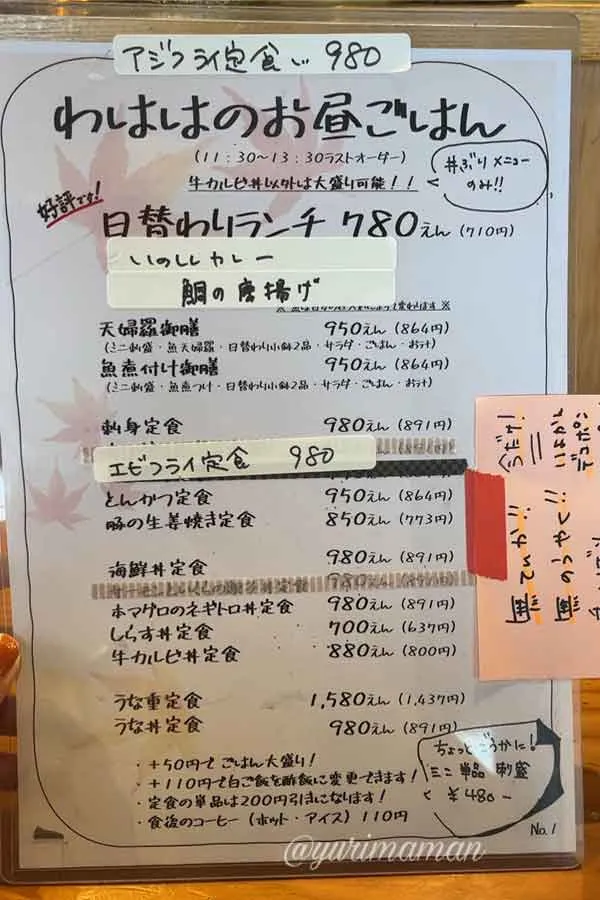 アジフライ定食 980
わははのお昼ごはん
(11:30~13:30ラストオーダー)
牛カルビ丼以外は大盛り可能！！
丼ぶりメニュー
のみ!!
好評です!
日替わりランチ 780えん (710円)
いのししカレー
鯛の唐揚げ
天婦羅御膳 950えん (864円)
(ミニ刺盛・魚天婦羅・日替わり小鉢2品・サラダ・ごはん・おみそ汁)
魚煮付け御膳 950えん (864円)
(ミニ刺盛・魚煮つけ・日替わり小鉢2品・サラダ・ごはん・おみそ汁)
刺身定食 980えん (891円)
エビフライ定食 980
とんかつ定食 950えん (864円)
豚の生姜焼き定食 850えん (773円)
海鮮丼定食 980えん (891円)
本マグロのネギトロ丼定食 980えん (891円)
しらす丼定食 700えん (637円)
牛カルビ丼定食 880えん (800円)
うな重定食 1,580えん (1,437円)
うな丼定食 980えん (891円)
・+50円で ごはん大盛り！
・+110円で白ご飯を酢飯に変更できます！
・定食の単品は200円引きになります！
・食後のコーヒー (ホット・アイス) 110円
ちょっとごうかに！
ミニ単品刺盛
¥480-
No.1
今だけ!
いよかん
デコポン
@yurimaman